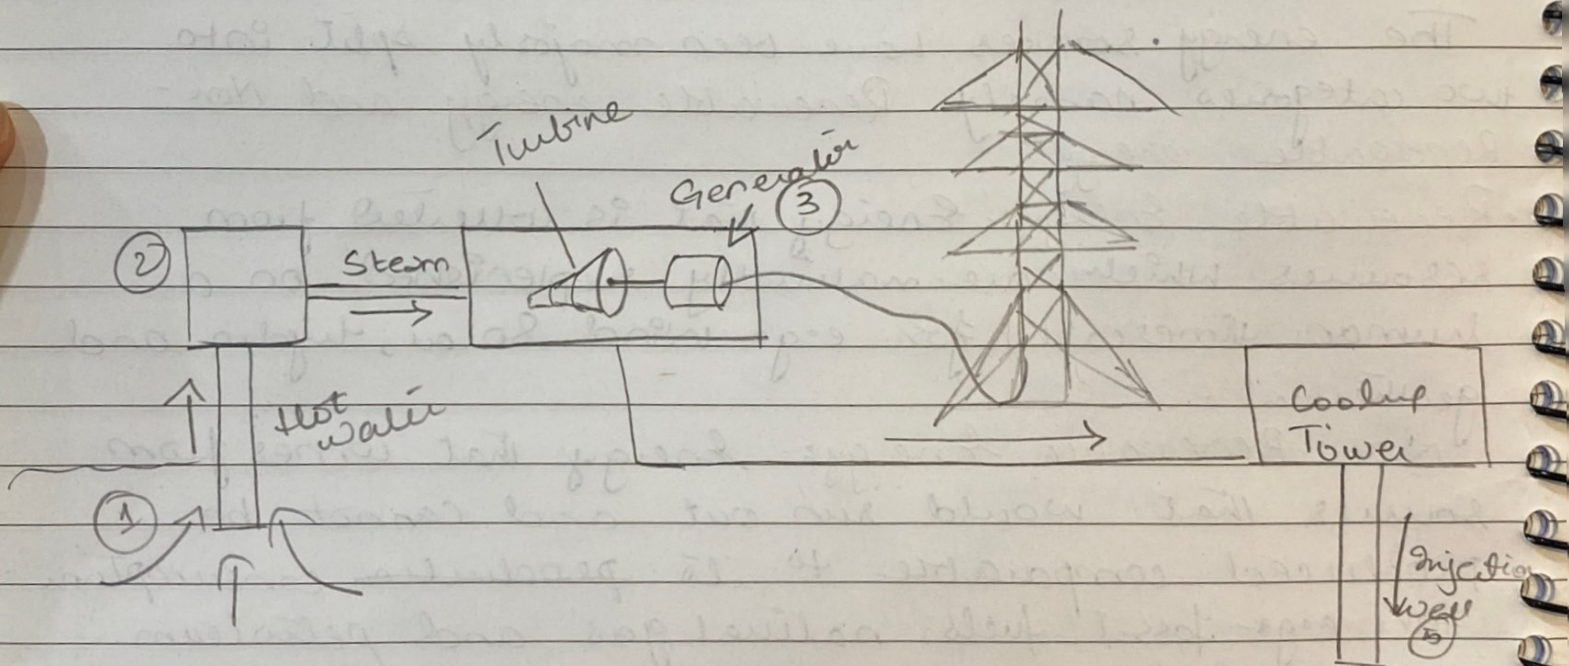 Turbine
Generator
3
2
Steam
Hot
water
Cooling
Tower
1
Injection
well
5